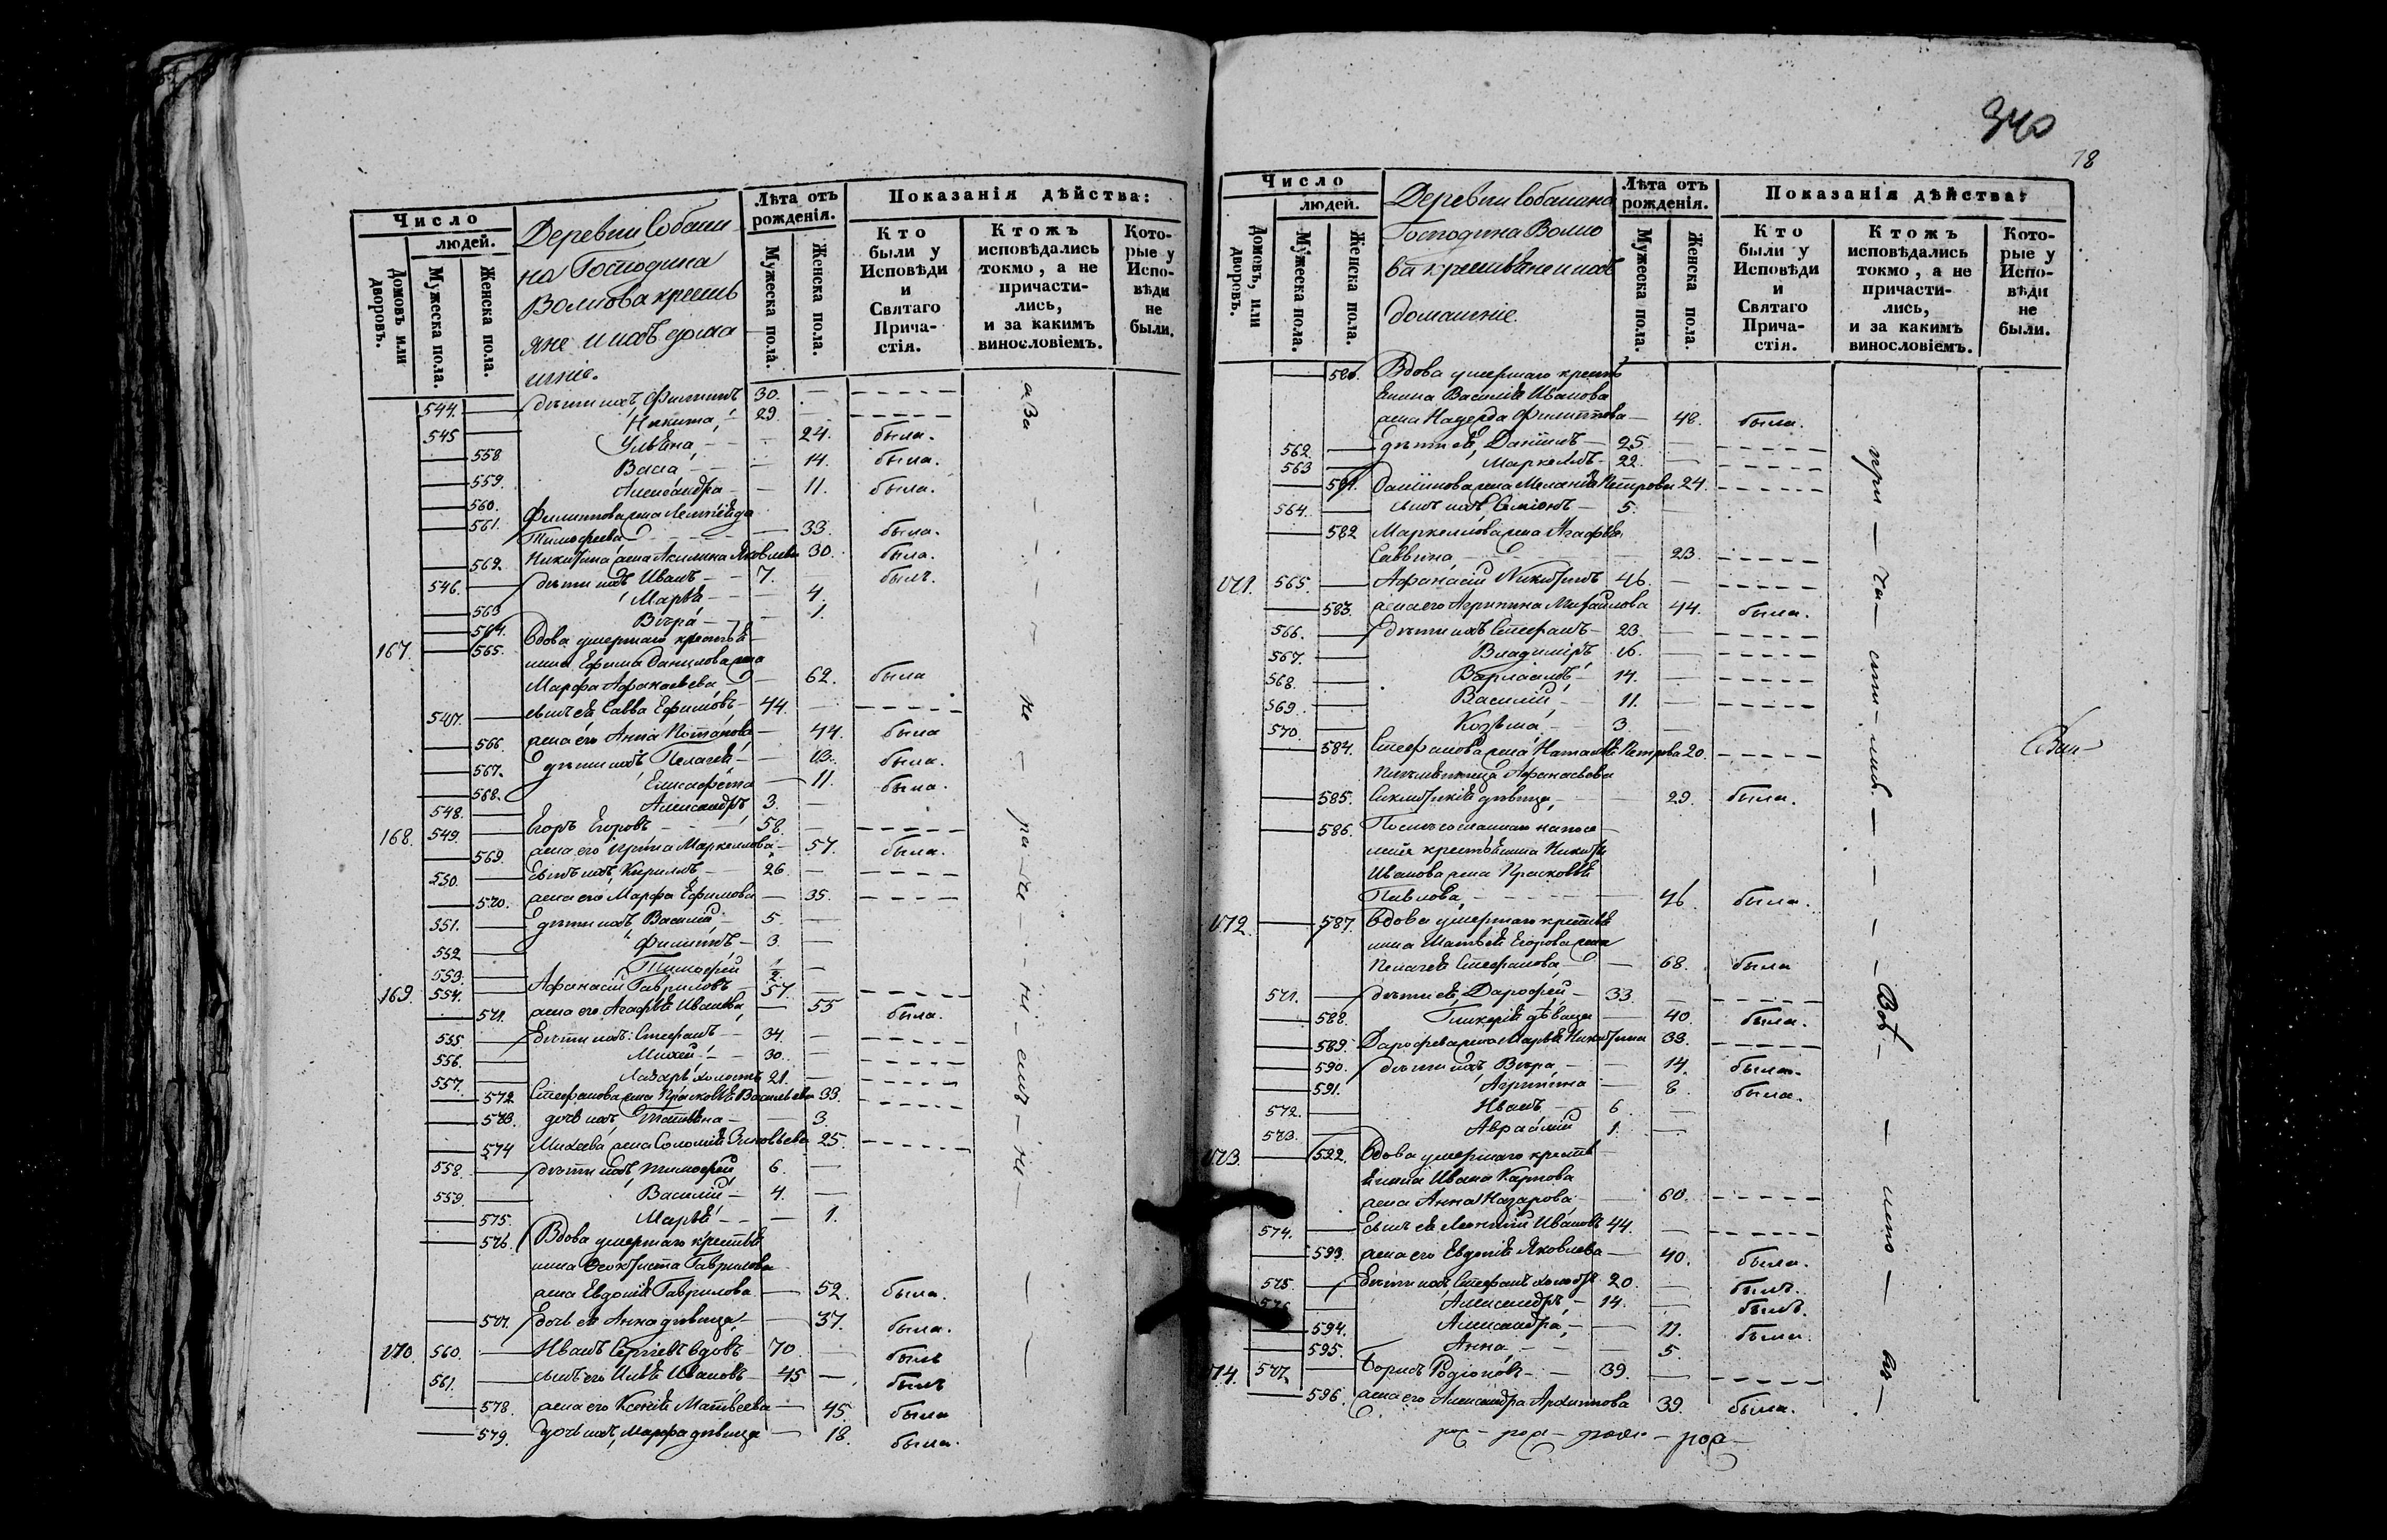 Число
людей.
Домовъ или дворовъ.
Мужеска пола.
Женска пола.
Деревни Собаки
на Господина
Волкова кресть
яне и ихъ дома
шніе.
Лѣта отъ рожденія.
Мужеска пола.
Женска пола.
Показанія дѣйства:
Кто были у Исповѣди и Святаго Прича-стія.
Ктожъ исповѣдались токмо, а не причасти-лись, и за какимъ винословіемъ.
Кото-рые у Испо-вѣди не были.
544. дѣти ихъ Филиппъ 30.
545 Никита 29
558 Ульяна 24. была.
559. Васса 14. была.
560. Александра 11. была.
561. Филиппова жена
Тимофеева 33. была.
562. Никитина жена Акилина Яковлева 30. была.
546. дѣти ихъ Иванъ 7. былъ.
563 Марья 4.
564. Вѣра 1.
167. 565. Вдова умершаго крестья
нина Ефима Данилова жена
Марфа Афанасьева 62. была
547. сынъ ея Савва Ефимовъ 44.
566. жена его Анна Потапова 44. была
567. дѣти ихъ Пелагея была.
568. Елисафета 11. была.
548. Александръ 3.
168. 549. Егоръ Егоровъ 58.
569. жена его Ирина Маркеллова 57. была.
550. сынъ ихъ Кириллъ 26.
570. жена его Марфа Ефимова 35.
551. дѣти ихъ Василій 5.
552 Филиппъ 3.
553. Тимофей 1/2
169. 554. Афанасій Гавриловъ 57.
571. жена его Агафья Иванова 55 была.
555 дѣти ихъ: Стефанъ 34.
556. Михей 30.
557. Лазарь холостъ 21.
572. Стефанова жена Прасковья Васильева 33.
573. дочь ихъ Татьяна 3.
574 Михеева жена Соломія Зиновьева 25.
558. дѣти ихъ Тимофей 6.
559. Василій 4.
575. Марья 1.
576. Вдова умершаго крестья
нина Феоктиста Гаврилова
жена Евдокія Гаврилова 52. была.
577. дочь ея Анна дѣвица 37. была.
170. 560. Иванъ Сергѣевъ вдовъ 70 былъ
561. сынъ его Илья Ивановъ 45 былъ
578. жена его Ксенія Матвеева 45. была
579. дочь ихъ Марфа дѣвица 18. была.
340
78
Число
людей.
Домовъ, или дворовъ.
Мужеска пола.
Женска пола.
Деревни Собакина
Господина Волко
ва крестьяне и ихъ
домашніе.
Лѣта отъ рожденія.
Мужеска пола.
Женска пола.
Показанія дѣйства:
Кто были у Исповѣди и Святаго Прича-стія.
Ктожъ исповѣдались токмо, а не причасти-лись, и за какимъ винословіемъ.
Кото-рые у Испо-вѣди не были.
580. Вдова умершаго кресть
янина Василья Иванова
жена Надежда Филиппова 48. была.
562. дѣти ея, Даніилъ 25
563 Маркеллъ 22.
581. Даніилова жена Меланія Петрова 24.
564. сынъ ихъ Симіонъ 5.
582 Маркеллова жена Агафья
Саввина 23.
171. 565. Афанасій Никитинъ 46.
583. жена его Агрипина Михайлова 44. была.
566. дѣти ихъ Стефанъ 23.
567. Владиміръ 16.
568. Варлаамъ 14.
569. Василій 11.
570. Козьма 3
584. Стефанова жена Наталья Петрова 20.
Афанасьева
585. дѣвица 29. была.
586. Послѣ сосланнаго на посе
ленія крестьянина Никиты
Иванова жена Прасковья
Павлова 46 была.
172. 587. Вдова умершаго крестья
нина Матвея Егорова жена
Пелагея Стефанова 68. была
571. дѣти ея, Дарофей 33.
588. Гликерія дѣвица 40. была.
589. Дарофеева жена Марья Никитина 33.
590. дѣти ихъ Вѣра 14. была.
591. Агрипина 8. была.
572. Иванъ 6
573. Авраамій 1.
173. 592. Вдова умершаго кресть
янина Ивана Карпова
жена Анна Назарова 60.
574. сынъ ея Леонтій Ивановъ 44.
593. жена его Евдокія Яковлева 40. была.
575. дѣти ихъ, Стефанъ холостъ 20. былъ.
576 Александръ 14. былъ.
594. Александра 11. была.
595. Анна 5.
174. 577. Борисъ Родіоновъ 39.
596. жена его Александра Архиппова 39. была.